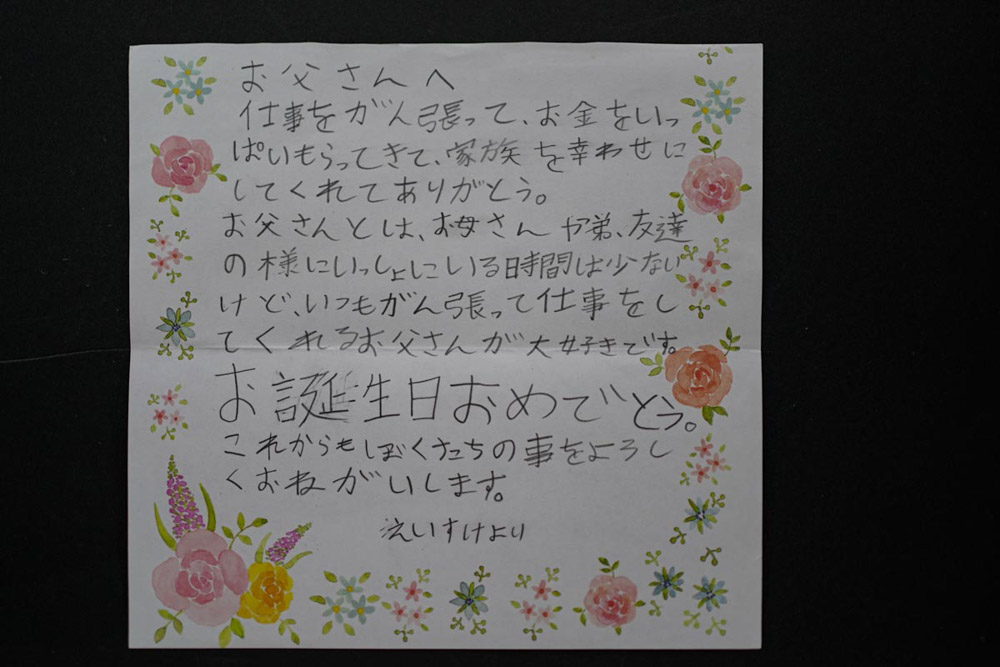 お父さんへ
仕事をがん張って、お金をいっ
ぱいもらってきて、家族を幸わせに
してくれてありがとう。
お父さんとは、お母さんや弟、友達
の様にいっしょにいる時間は少ない
けど、いつもがん張って仕事をし
てくれるお父さんが大好きです。
お誕生日おめでとう。
これからもぼくたちの事をよろし
くおねがいします。
えいすけより